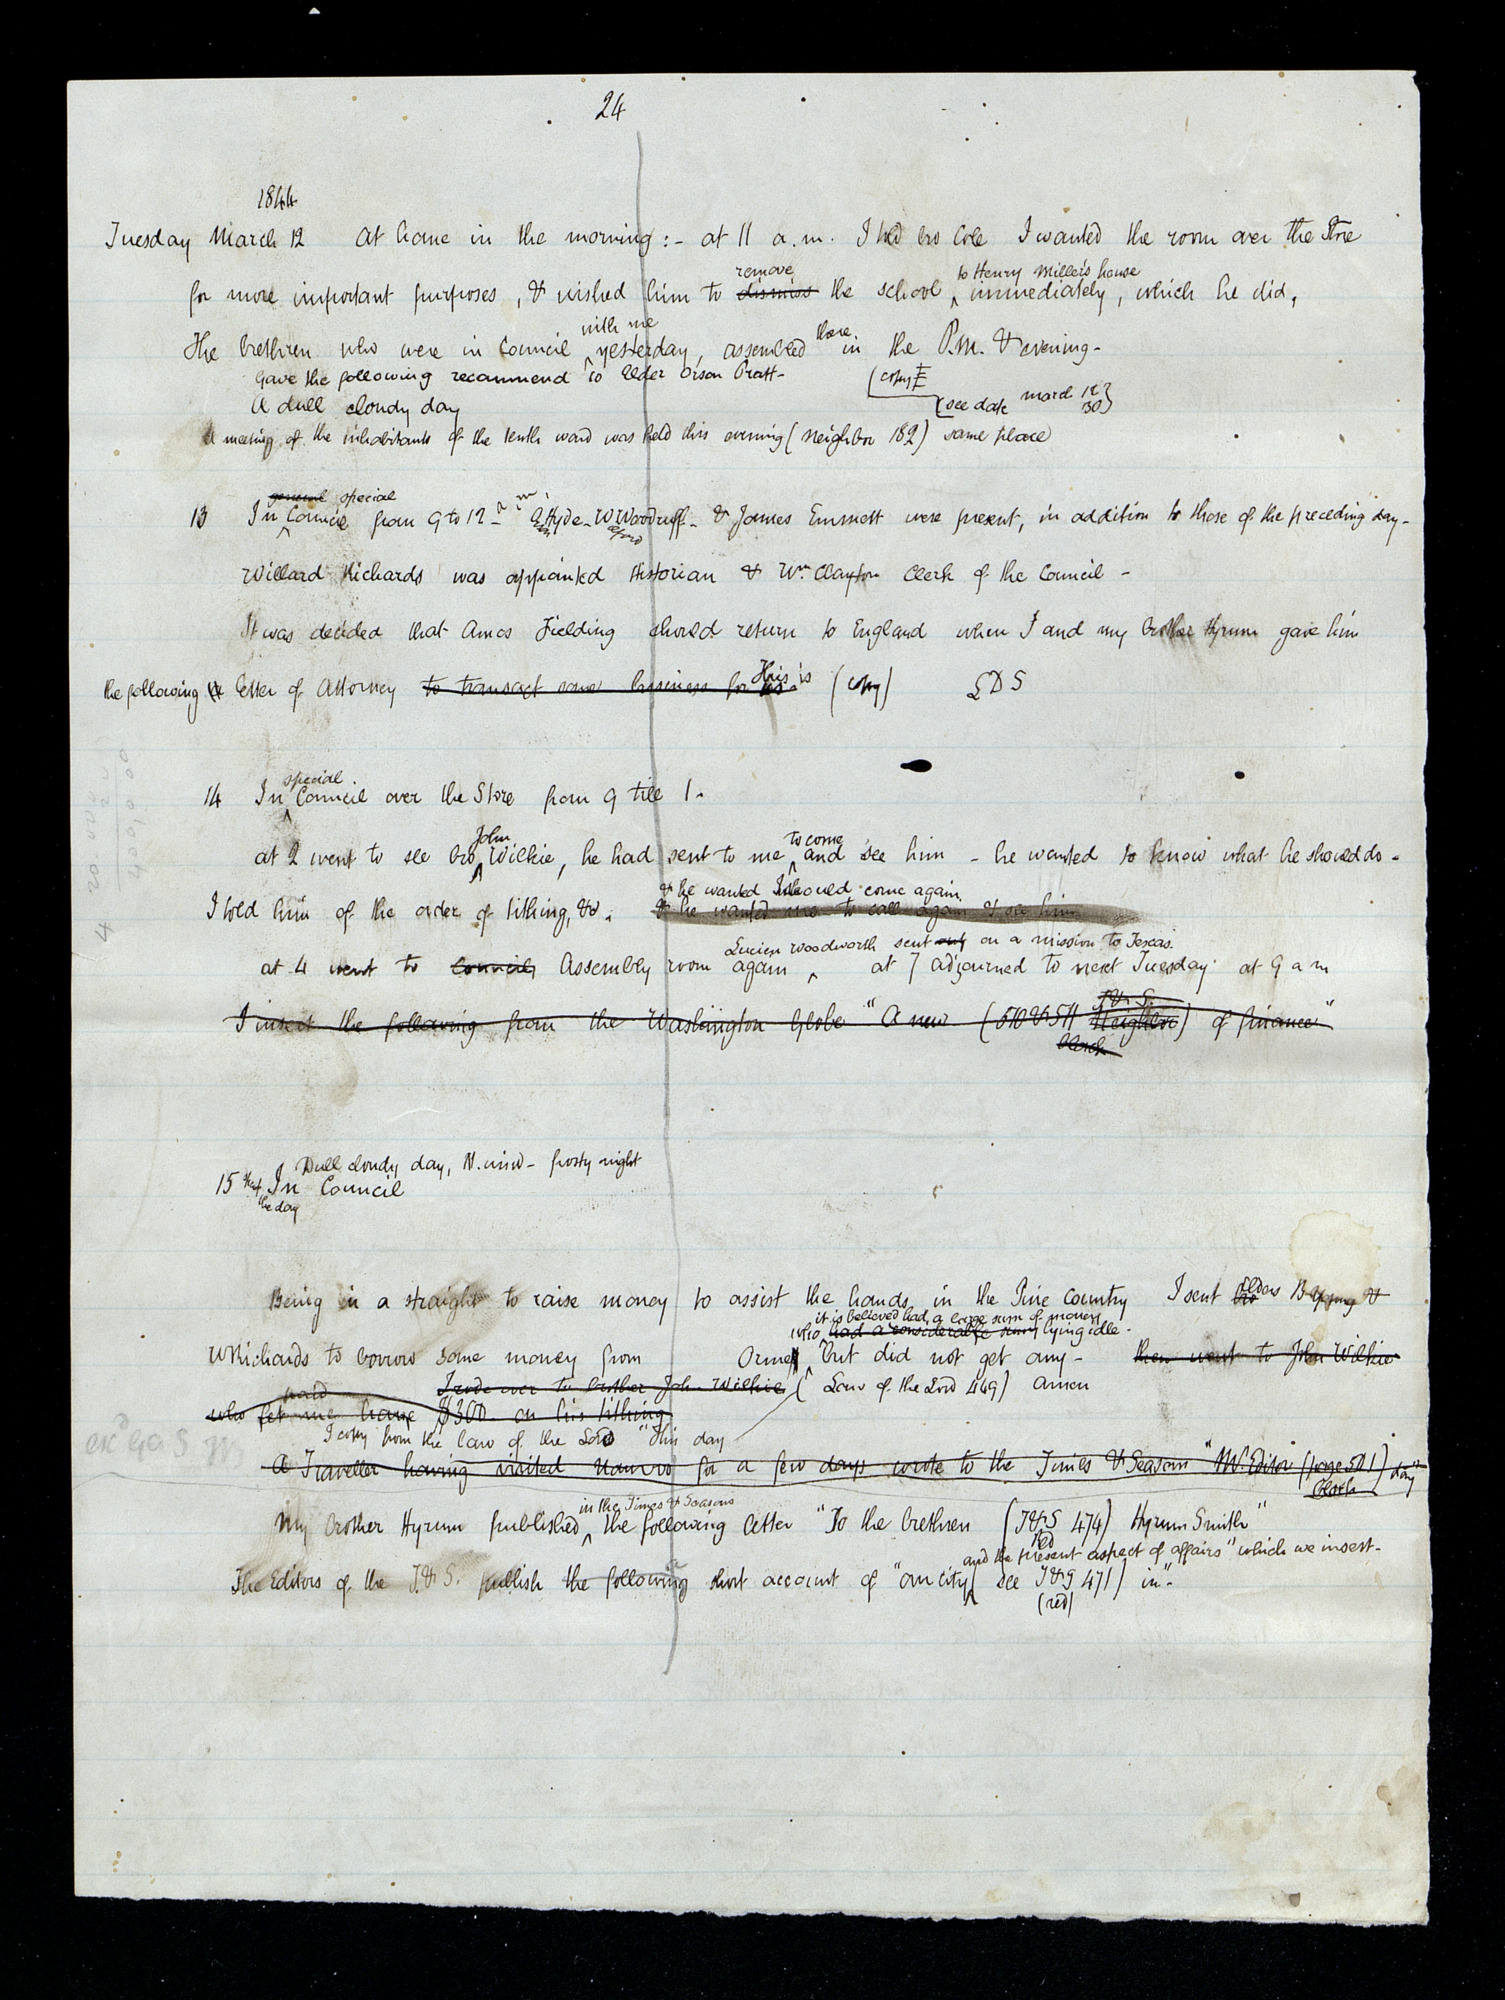 24
1844
Tuesday March 12 At home in the morning:- at 11 a.m. I told bro Cole I wanted the room over the Store
for more important purposes, & wished him to dismiss remove the school to Henry Miller's house immediately, which he did,
The brethren who were in Council with me yesterday, assembled there in the P.M. & evening-
Gave the following recommend to Elder Orson Pratt- (copy E
A dull cloudy day (see date march 12 30)
A meeting of the inhabitants of the tenth ward was held this evening (Neighbor 182) same place
13 In general special Council from 9 to 12- O. Hyde- W Woodruff- & James Emmett were present, in addition to those of the preceding day-
Willard Richards was appointed Historian & Wm. Clayton Clerk of the Council-
It was decided that Amos Fielding should return to England when I and my brother Hyrum gave him
the following letter of Attorney to transact some business for us. This is (copy) LDS
14 In special Council over the Store from 9 till 1.
at 2 went to see bro John Wilkie, he had sent to me to come and see him - he wanted to know what he should do-
I told him of the order of tithing, &c. & he wanted me to call again & see him & he wanted I should come again.
at 4 went to Council Assembly room again Lucien Woodworth sent out on a mission to Texas. at 7 adjourned to next Tuesday at 9 a m
I insert the following from the Washington Globe "A new (510 & 511 Neighbor T & S. black) of finance"
Dull cloudy day, N. wind- frosty night
15 the day In Council
Being in a straight to raise money to assist the hands in the Pine Country I sent bro Elders B Young &
W Richards to borrow some money from Orme who had a considerable sum it is believed had a large sum of money lying idle- but did not get any- then went to John Wilkie
who let me have paid $300 on his tithing I rode over to brother John Wilkie (Law of the Lord 449) Amen
I copy from the law of the Lord "This day
A Traveller having visited Nauvoo for a few days wrote to the Times & Season "Mr. Editor (page 501) black day"
My brother Hyrum published in the Times & Seasons the following letter "To the brethren (T&S 474) red Hyrum Smith"
The Editors of the T.&S. publish the following short account of "our city and the present aspect of affairs" which we insert- (see T&S 471) in"-
(red)